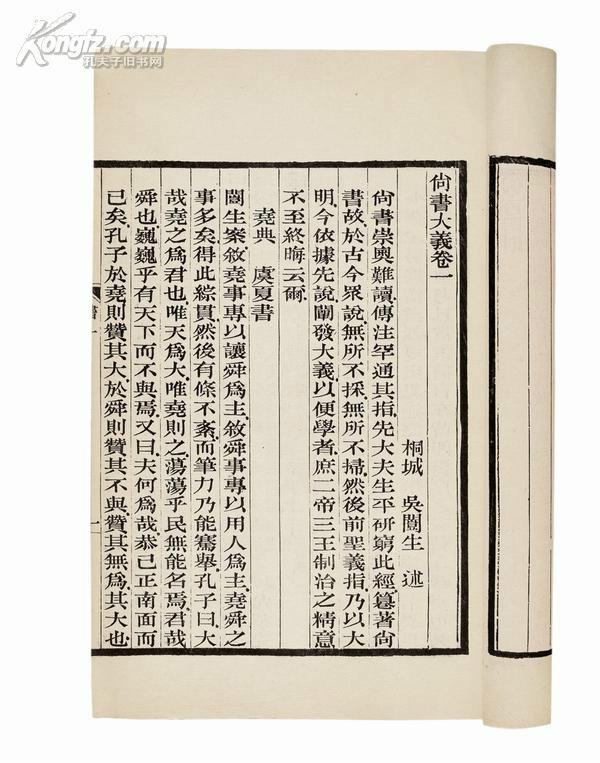 Kongfz.com
孔夫子旧书网
尙書大義卷一
桐城 吳闓生 述
尙書崇奧難讀傳注罕通其指先大夫生平硏窮此經篡著尙
書故於古今眾說無所不採無所不掃然後前聖義指乃以大
明今依據先說闡發大義以便學者庶二帝三王制治之精意
不至終晦云爾
堯典 虞夏書
闓生案敘堯事專以讓舜爲主敘舜事專以用人爲主堯舜之
事多矣得此綜貫然後有條不紊而筆力乃能騫舉孔子曰大
哉堯之爲君也唯天爲大唯堯則之蕩蕩乎民無能名焉君哉
舜也巍巍乎有天下而不與焉又曰夫何爲哉恭己正南面而
已矣孔子於堯則贊其大於舜則贊其不與贊其無爲其大也
一